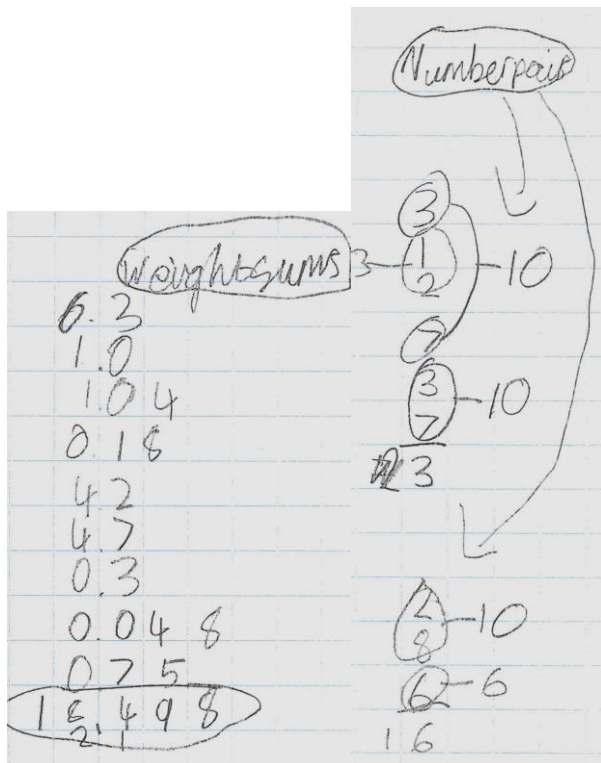 Number pairs
3
3 - 1 - 10
2
7
3 - 10
7
23
2 - 10
8
6 - 6
16
Weight sums
6.3
1.0
1.04
0.18
4.2
4.7
0.3
0.048
0.75
18498
2 1